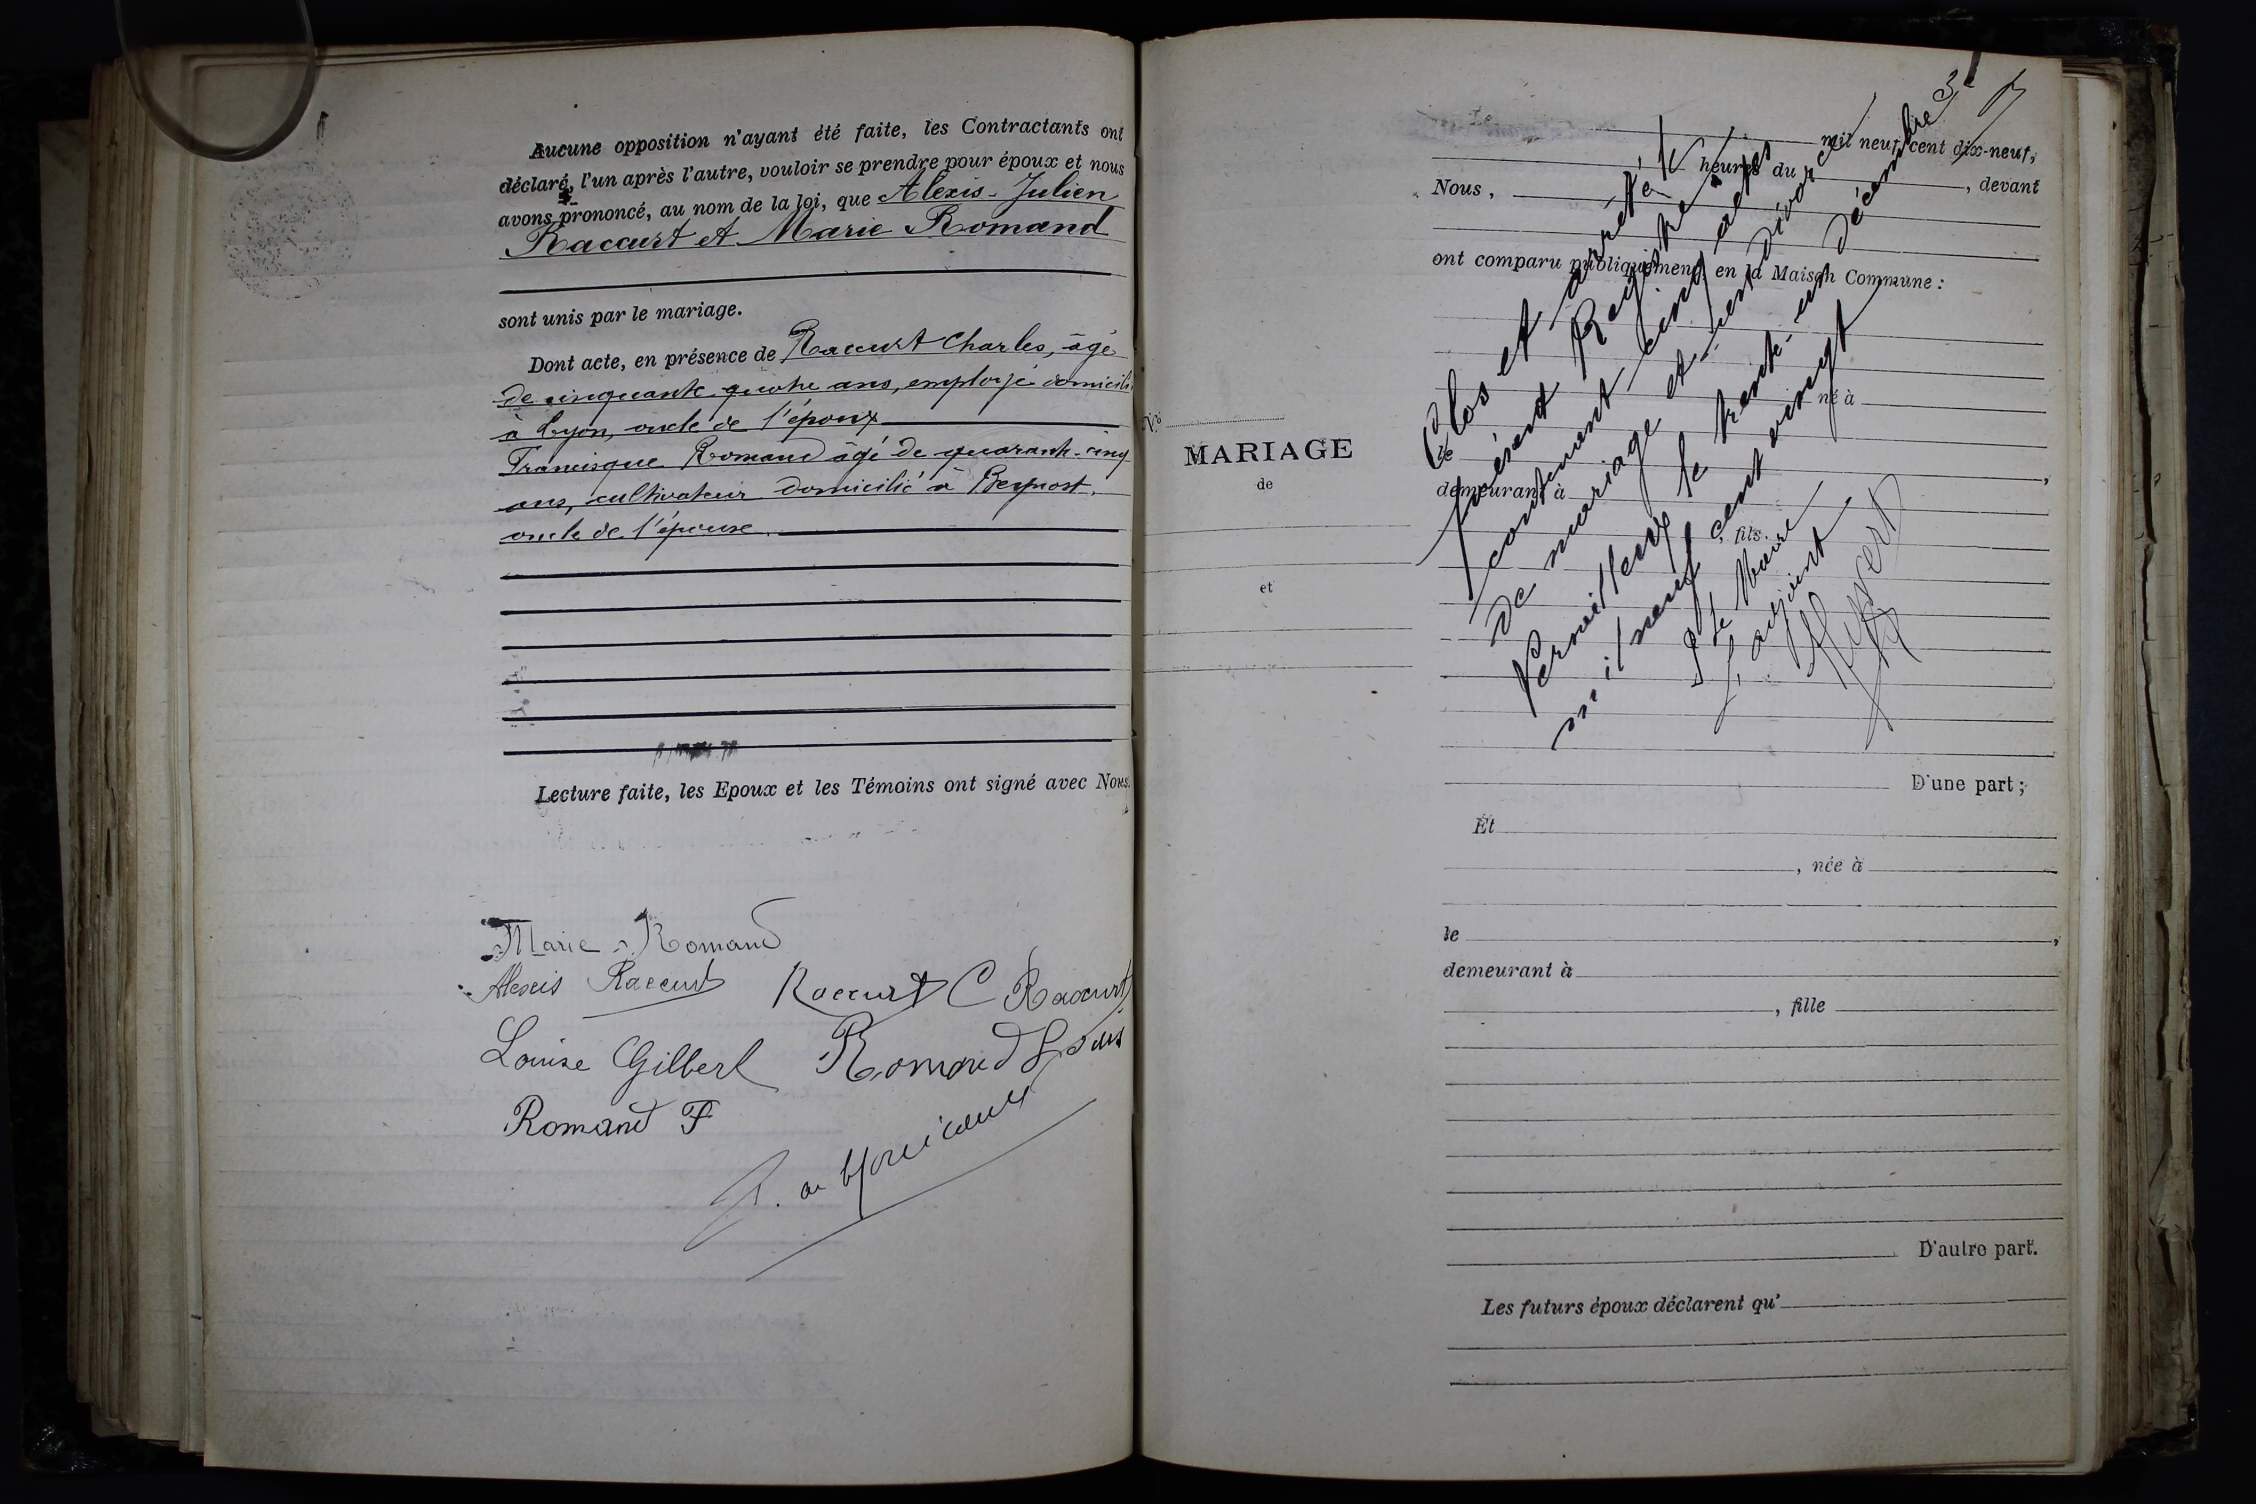 Aucune opposition n'ayant été faite, les Contractants ont
déclaré, l'un après l'autre, vouloir se prendre pour époux et nous
avons prononcé, au nom de la loi, que Alexis-Julien
Raccurt et Marie Romand
sont unis par le mariage.
Dont acte, en présence de Raccurt Charles, âgé
de cinquante quatre ans, employé domicilié
à Lyon, oncle de l'époux
Francisque Romand âgé de quarante-cinq
ans, cultivateur domicilié à Beynost,
oncle de l'épouse.
Lecture faite, les Epoux et les Témoins ont signé avec Nous.
Marie Romand
Alexis Raccurt Raccurt C Raccurt
Louise Gilbert Romand
Romand F
N°
MARIAGE
de
et
Le
mil neuf cent dix-neuf,
heures du , devant
Nous,
ont comparu publiquement en la Maison Commune :
né à
le
demeurant à
, fils
D'une part ;
Et
, née à
le ,
demeurant à
, fille
D'autre part.
Les futurs époux déclarent qu'
Clos et arrêté le
présent Registre
contenant cinq actes
de mariage et un divorce
le trente-un décembre
mil neuf cent vingt
P. le Maire
L'adjoint